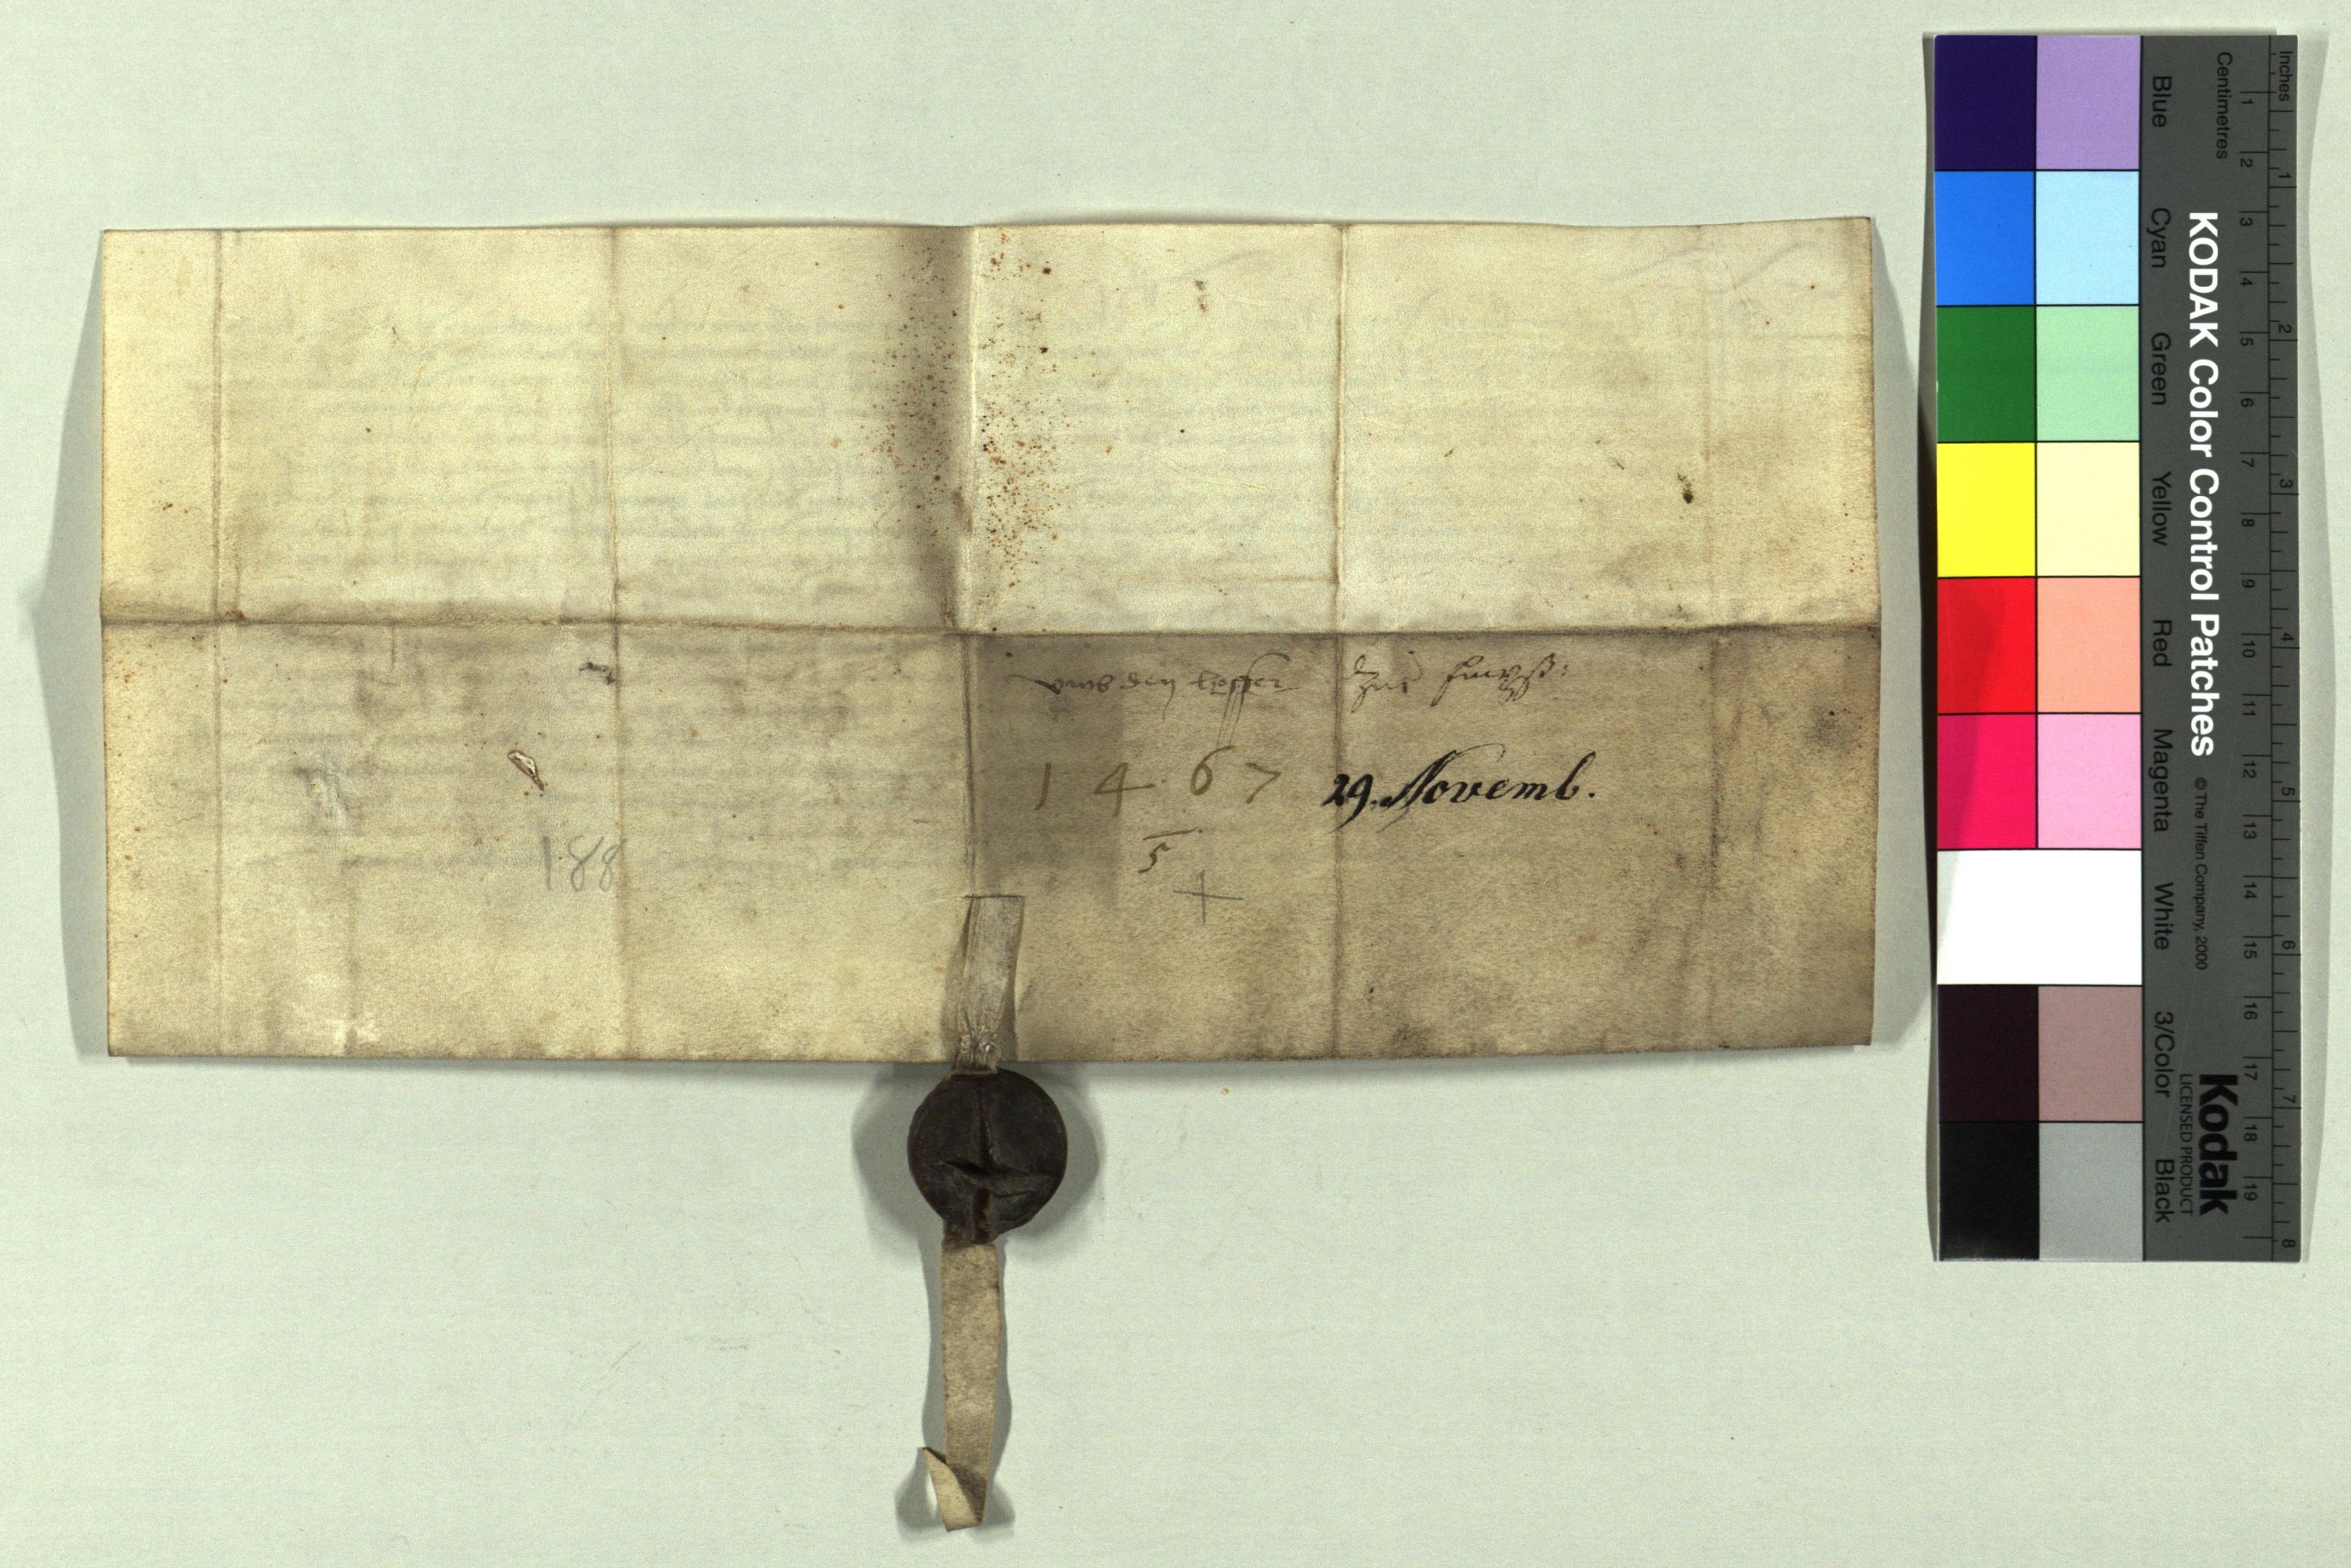 vmb den
1 4 6 7 29. Novemb.
5
188
Inches
Centimetres
1 2 3 4 5 6 7 8 9 10 11 12 13 14 15 16 17 18 19
1 2 3 4 5 6 7 8
KODAK Color Control Patches © The Tiffen Company, 2000
Kodak
LICENSED PRODUCT
Blue Cyan Green Yellow Red Magenta White 3/Color Black